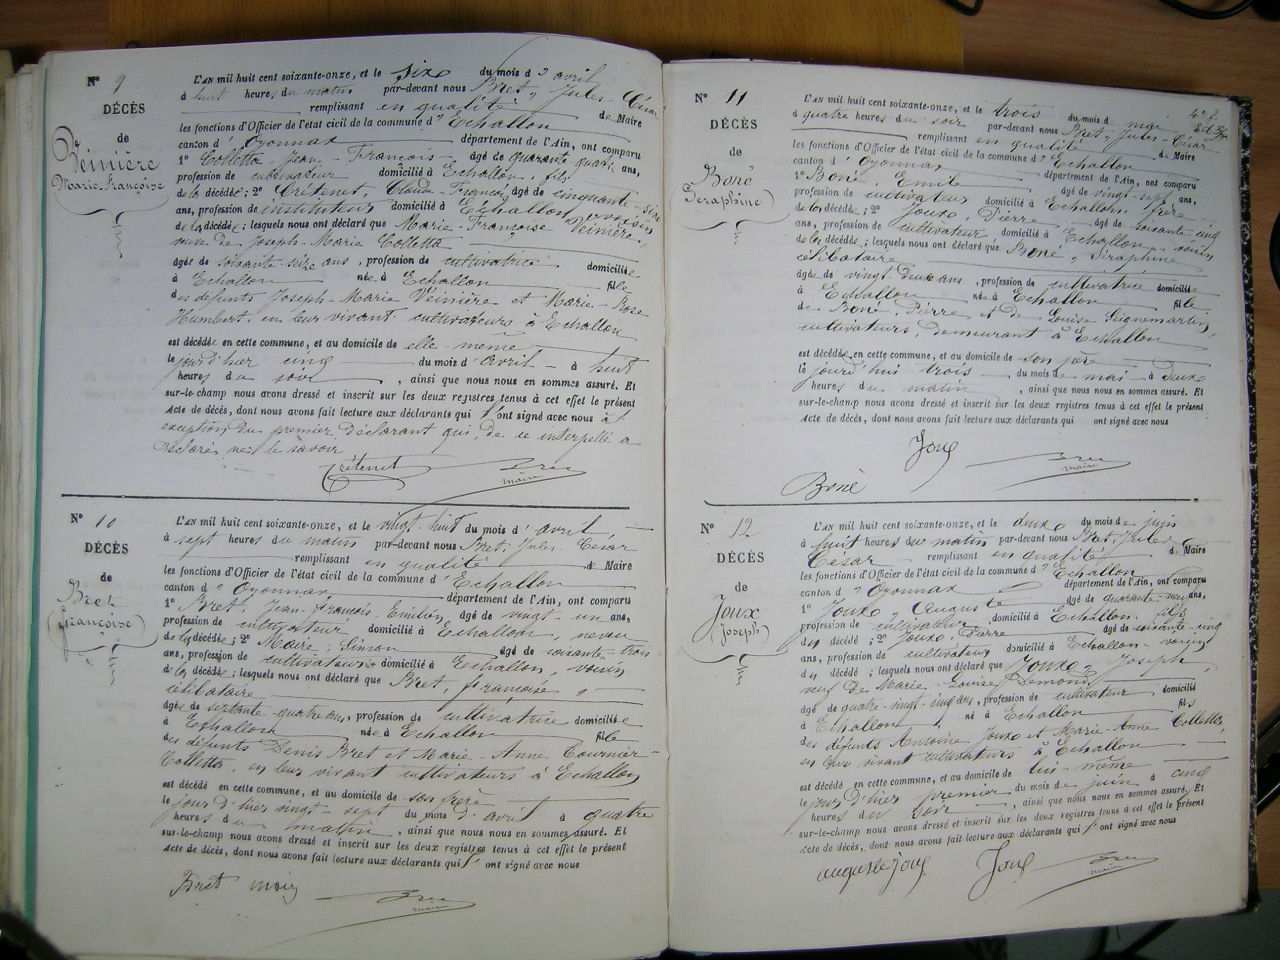 N° 9
DÉCÈS
de
Veinière
Marie Françoise
L'AN mil huit cent soixante-onze, et le six du mois d'avril
à huit heures du matin par-devant nous Bret, Jules César
remplissant en qualité de Maire
les fonctions d'Officier de l'état civil de la commune d'Echallon
canton d'Oyonnax département de l'Ain, ont comparu
1° Colletta Jean-François âgé de quarante quatre ans,
profession de cultivateur domicilié à Echallon, fils
de la décédée; 2° Crétenet, Claude-François âgé de cinquante-
ans, profession de instituteur domicilié à Echallon, voisin
de la décédée; lesquels nous ont déclaré que Marie-Françoise Veinière,
veuve de Joseph-Marie Colletta
âgée de soixante seize ans, profession de cultivatrice domiciliée
à Echallon née à Echallon fille
des défunts Joseph-Marie Veinière et Marie-Rose
Humbert en leur vivant cultivateurs à Echallon
est décédée en cette commune, et au domicile de elle-même
le jour d'hier cinq du mois d'avril à huit
heures du soir, ainsi que nous nous en sommes assuré. Et
sur-le-champ nous avons dressé et inscrit sur les deux registres tenus à cet effet le présent
acte de décès, dont nous avons fait lecture aux déclarants qui l'ont signé avec nous à l'
exception du premier déclarant qui, de ce interpellé a
déclaré ne le savoir
Crétenet Bret
maire
N° 10
DÉCÈS
de
Bret
(françoise)
L'AN mil huit cent soixante-onze, et le vingt-huit du mois d'avril
à sept heures du matin par-devant nous Bret, Jules César
remplissant en qualité de Maire
les fonctions d'Officier de l'état civil de la commune d'Echallon
canton d'Oyonnax département de l'Ain, ont comparu
1° Bret, Jean-françois, Emilien, âgé de vingt-un ans,
profession de cultivateur domicilié à Echallon, neveu
de la décédée; 2° Maire, Simon âgé de soixante-trois
ans, profession de cultivateur domicilié à Echallon, voisin
de la décédée; lesquels nous ont déclaré que Bret, françoise,
célibataire
âgée de septante-quatre ans, profession de cultivatrice domiciliée
à Echallon née à Echallon fille
des défunts Denis Bret et Marie-Anne Tournier-
Colletta, en leur vivant cultivateurs à Echallon
est décédée en cette commune, et au domicile de son frère
le jour d'hier vingt-sept du mois d'avril à quatre
heures du matin, ainsi que nous nous en sommes assuré. Et
sur-le-champ nous avons dressé et inscrit sur les deux registres tenus à cet effet le présent
acte de décès, dont nous avons fait lecture aux déclarants qui l'ont signé avec nous
Bret Bret
maire
N° 11
DÉCÈS
de
Boné
Séraphine
L'AN mil huit cent soixante-onze, et le trois du mois de mai
à quatre heures du soir par-devant nous Bret, Jules-César
remplissant en qualité de Maire
les fonctions d'Officier de l'état civil de la commune d'Echallon
canton d'Oyonnax département de l'Ain, ont comparu
1° Boné, Emile âgé de vingt-sept ans,
profession de cultivateur domicilié à Echallon, frère
de la décédée; 2° Joux, Pierre âgé de soixante cinq
ans, profession de cultivateur domicilié à Echallon voisin
de la décédée; lesquels nous ont déclaré que Boné, Séraphine
célibataire
âgée de vingt deux ans, profession de cultivatrice domiciliée
à Echallon née à Echallon fille
de Boné, Pierre et de Louise Guignemartin,
cultivateurs, demeurant à Echallon
est décédée en cette commune, et au domicile de son père
le jourd'hui trois du mois de mai à deux
heures du matin, ainsi que nous nous en sommes assuré. Et
sur-le-champ nous avons dressé et inscrit sur les deux registres tenus à cet effet le présent
acte de décès, dont nous avons fait lecture aux déclarants qui ont signé avec nous
Joux Bret
maire
Boné
N° 12
DÉCÈS
de
Joux
(joseph)
L'AN mil huit cent soixante-onze, et le deux du mois de juin
à huit heures du matin par-devant nous Bret, Jules
César remplissant en qualité de Maire
les fonctions d'Officier de l'état civil de la commune d'Echallon
canton d'Oyonnax département de l'Ain, ont comparu
1° Joux, Auguste âgé de quarante- ans,
profession de cultivateur domicilié à Echallon, fils
du décédé; 2° Joux, Pierre âgé de soixante-cinq
ans, profession de cultivateur domicilié à Echallon voisin
du décédé; lesquels nous ont déclaré que Joux, Joseph,
veuf de Marie-Louise
âgé de quatre-vingt-cinq ans, profession de cultivateur domicilié
à Echallon né à Echallon fils
des défunts Antoine Joux et Marie-Anne Colletta,
en leur vivant cultivateurs à Echallon
est décédé en cette commune, et au domicile de lui-même
le jour d'hier premier du mois de juin à cinq
heures du soir, ainsi que nous nous en sommes assuré. Et
sur-le-champ nous avons dressé et inscrit sur les deux registres tenus à cet effet le présent
acte de décès, dont nous avons fait lecture aux déclarants qui l'ont signé avec nous
auguste joux Joux Bret
maire